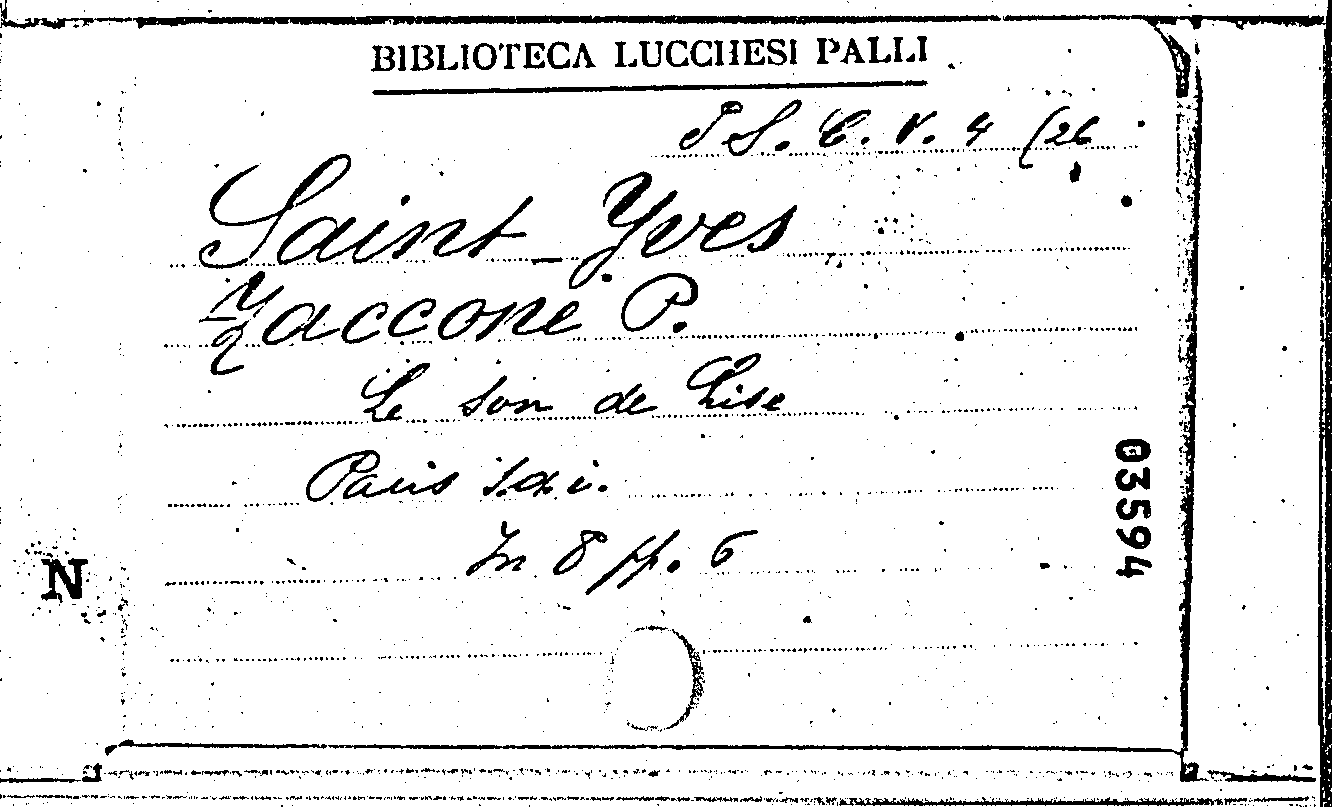 BIBLIOTECA LUCCHESI PALLI
S. C. V. 4 (26
Saint-Yves
Zaccone P.
Le son de Lise
Paris s.d.i.
In 8 pp. 6
03594
N